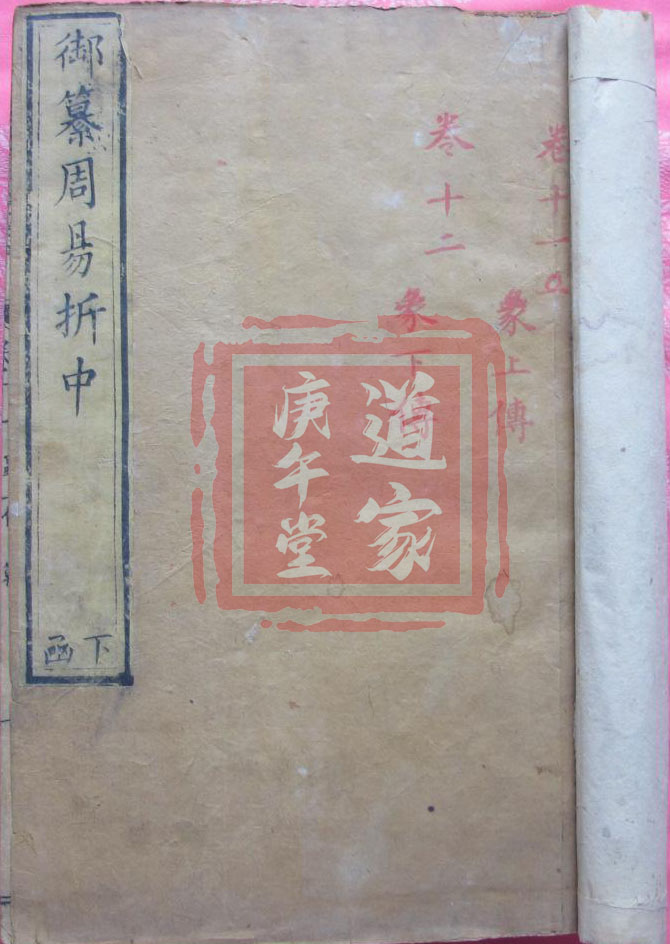 卷十一
象上傳
卷十二
象下傳
御纂周易折中
下函
道家
庚午堂